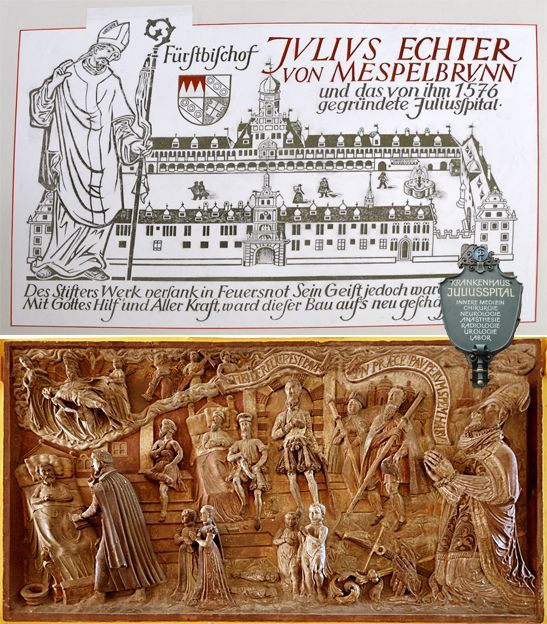 Fürstbischof
JVLIVS ECHTER
VON MESPELBRVNN
und das von ihm 1576
gegründete Juliusspital·
Des Stifters Werk versank in Feuersnot Sein Geist jedoch war
Mit Gottes Hilf und Aller Kraft, ward dieser Bau aufs neu gescha
KRANKENHAUS
JULIUSSPITAL
INNERE MEDIZIN
CHIRURGIE
NEUROLOGIE
ANÄSTHESIE
RADIOLOGIE
UROLOGIE
LABOR
TIBI DERELICTVS EST PAV